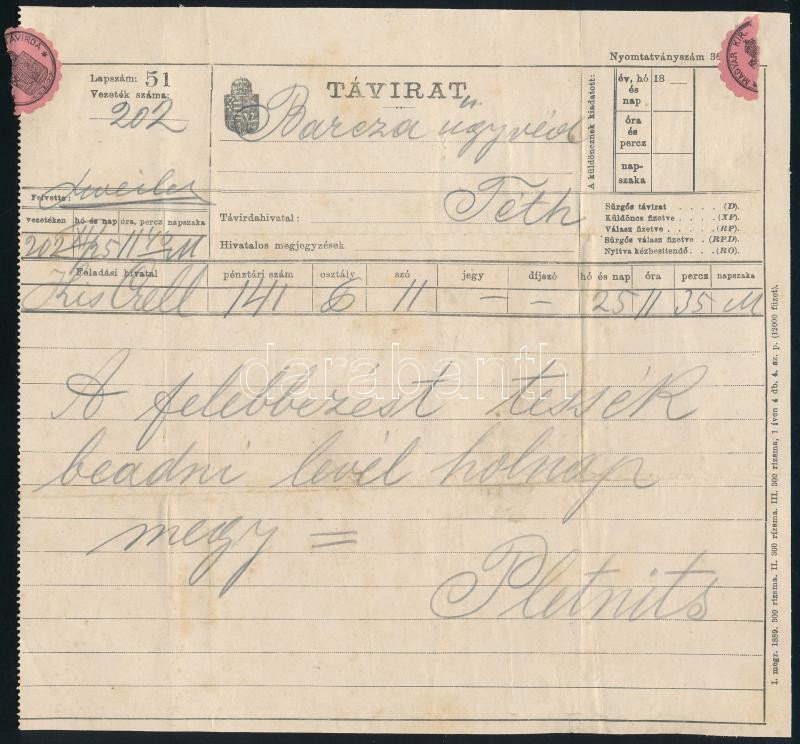 Nyomtatványszám 36
TÁVIRDA
MAGYAR KIR.
Lapszám: 51
Vezeték száma:
202
TÁVIRAT.
Barcza ügyvéd
Téth
A küldöncznek kiadatott:
év, hó és nap
18
óra és percz
nap-szaka
Felvette:
vezetéken hó és nap óra, percz napszaka
202 25 11 M
Távirdahivatal:
Hivatalos megjegyzések
Sürgős távirat . . . . (D).
Küldöncz fizetve . . . . (XP).
Válasz fizetve . . . . (RP).
Sürgős válasz fizetve . . (RPD).
Nyitva kézbesítendő . . (RO).
Feladási hivatal pénztári szám osztály szó jegy díjszó hó és nap óra percz napszaka
Kis Czell 141 6 11 — — 25 11 35 M
A felebbezést tessék
beadni levél holnap
megy =
Pletnits
darabanth
I. megr. 1889. 300 rizsma. II. 300 rizsma. III. 300 rizsma, 1 íven 4 db. 4. sz. p. (12000 füzet).